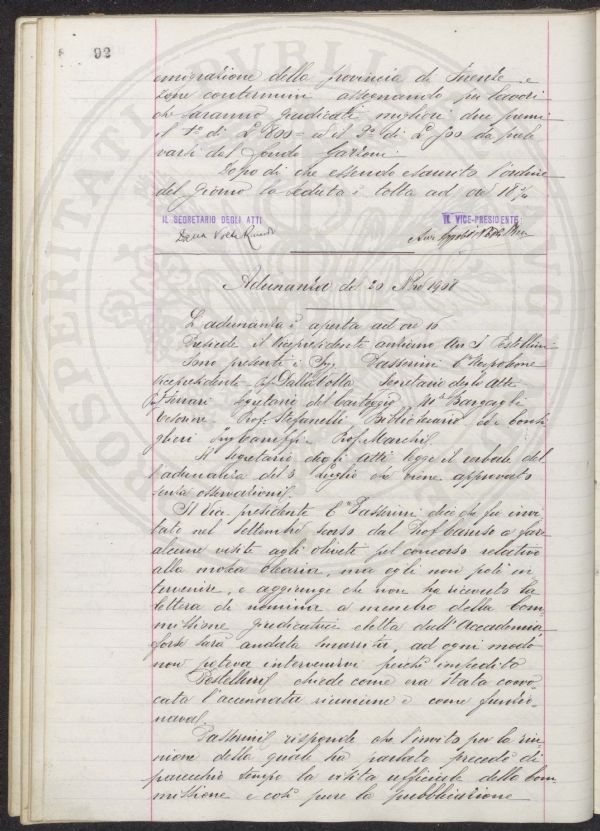 92
emigrazione della provincia di Firenze e
zone contermini assegnando pei lavori
che saranno giudicati migliori due premi
il 1° di L. 800 = e il 2° di L. 500 da prele
varsi dal fondo
Dopo di che essendo esaurito l'ordine
del giorno la seduta è tolta ad ore 18
IL SEGRETARIO DEGLI ATTI IL VICE-PRESIDENTE
Dalla Volta Riccardo
Adunanza del 20 1908
L'adunanza è aperta ad ore 16
Presiede il Vicepresidente anziano Pestellini
Sono presenti i Sigg. Passerini C.te Napoleone
Vicepresidente Dalla Volta Segretario degli Atti
Prof. Ferrari Segretario del Carteggio M.se Bargagli
Tesoriere Prof. Stefanelli Bibliotecario ed i Consi
glieri Ing. Caneffi Prof. Marchi.
Il Segretario degli Atti legge il verbale del
l'adunanza del 3 Luglio che viene approvato
senza osservazioni.
Il Vice presidente C.te Passerini dice che fu invi
tato nel settembre scorso dal Prof. Caruso a fare
alcune visite agli oliveti pel concorso relativo
alla mosca olearia, ma egli non potè in
tervenire, e aggiunge che non ha ricevuto la
lettera di nomina a membro della Com
missione giudicatrice eletta dall'Accademia,
forse sarà andata smarrita, ad ogni modo
non poteva intervenirvi perchè impedito
Pestellini chiede come era stata convo
cata l'accennata riunione e come funzio
nava.
Passerini risponde che l'invito per la riu
nione della quale ha parlato precedè di
parecchio tempo la visita ufficiale della Com
missione e così pure la pubblicazione